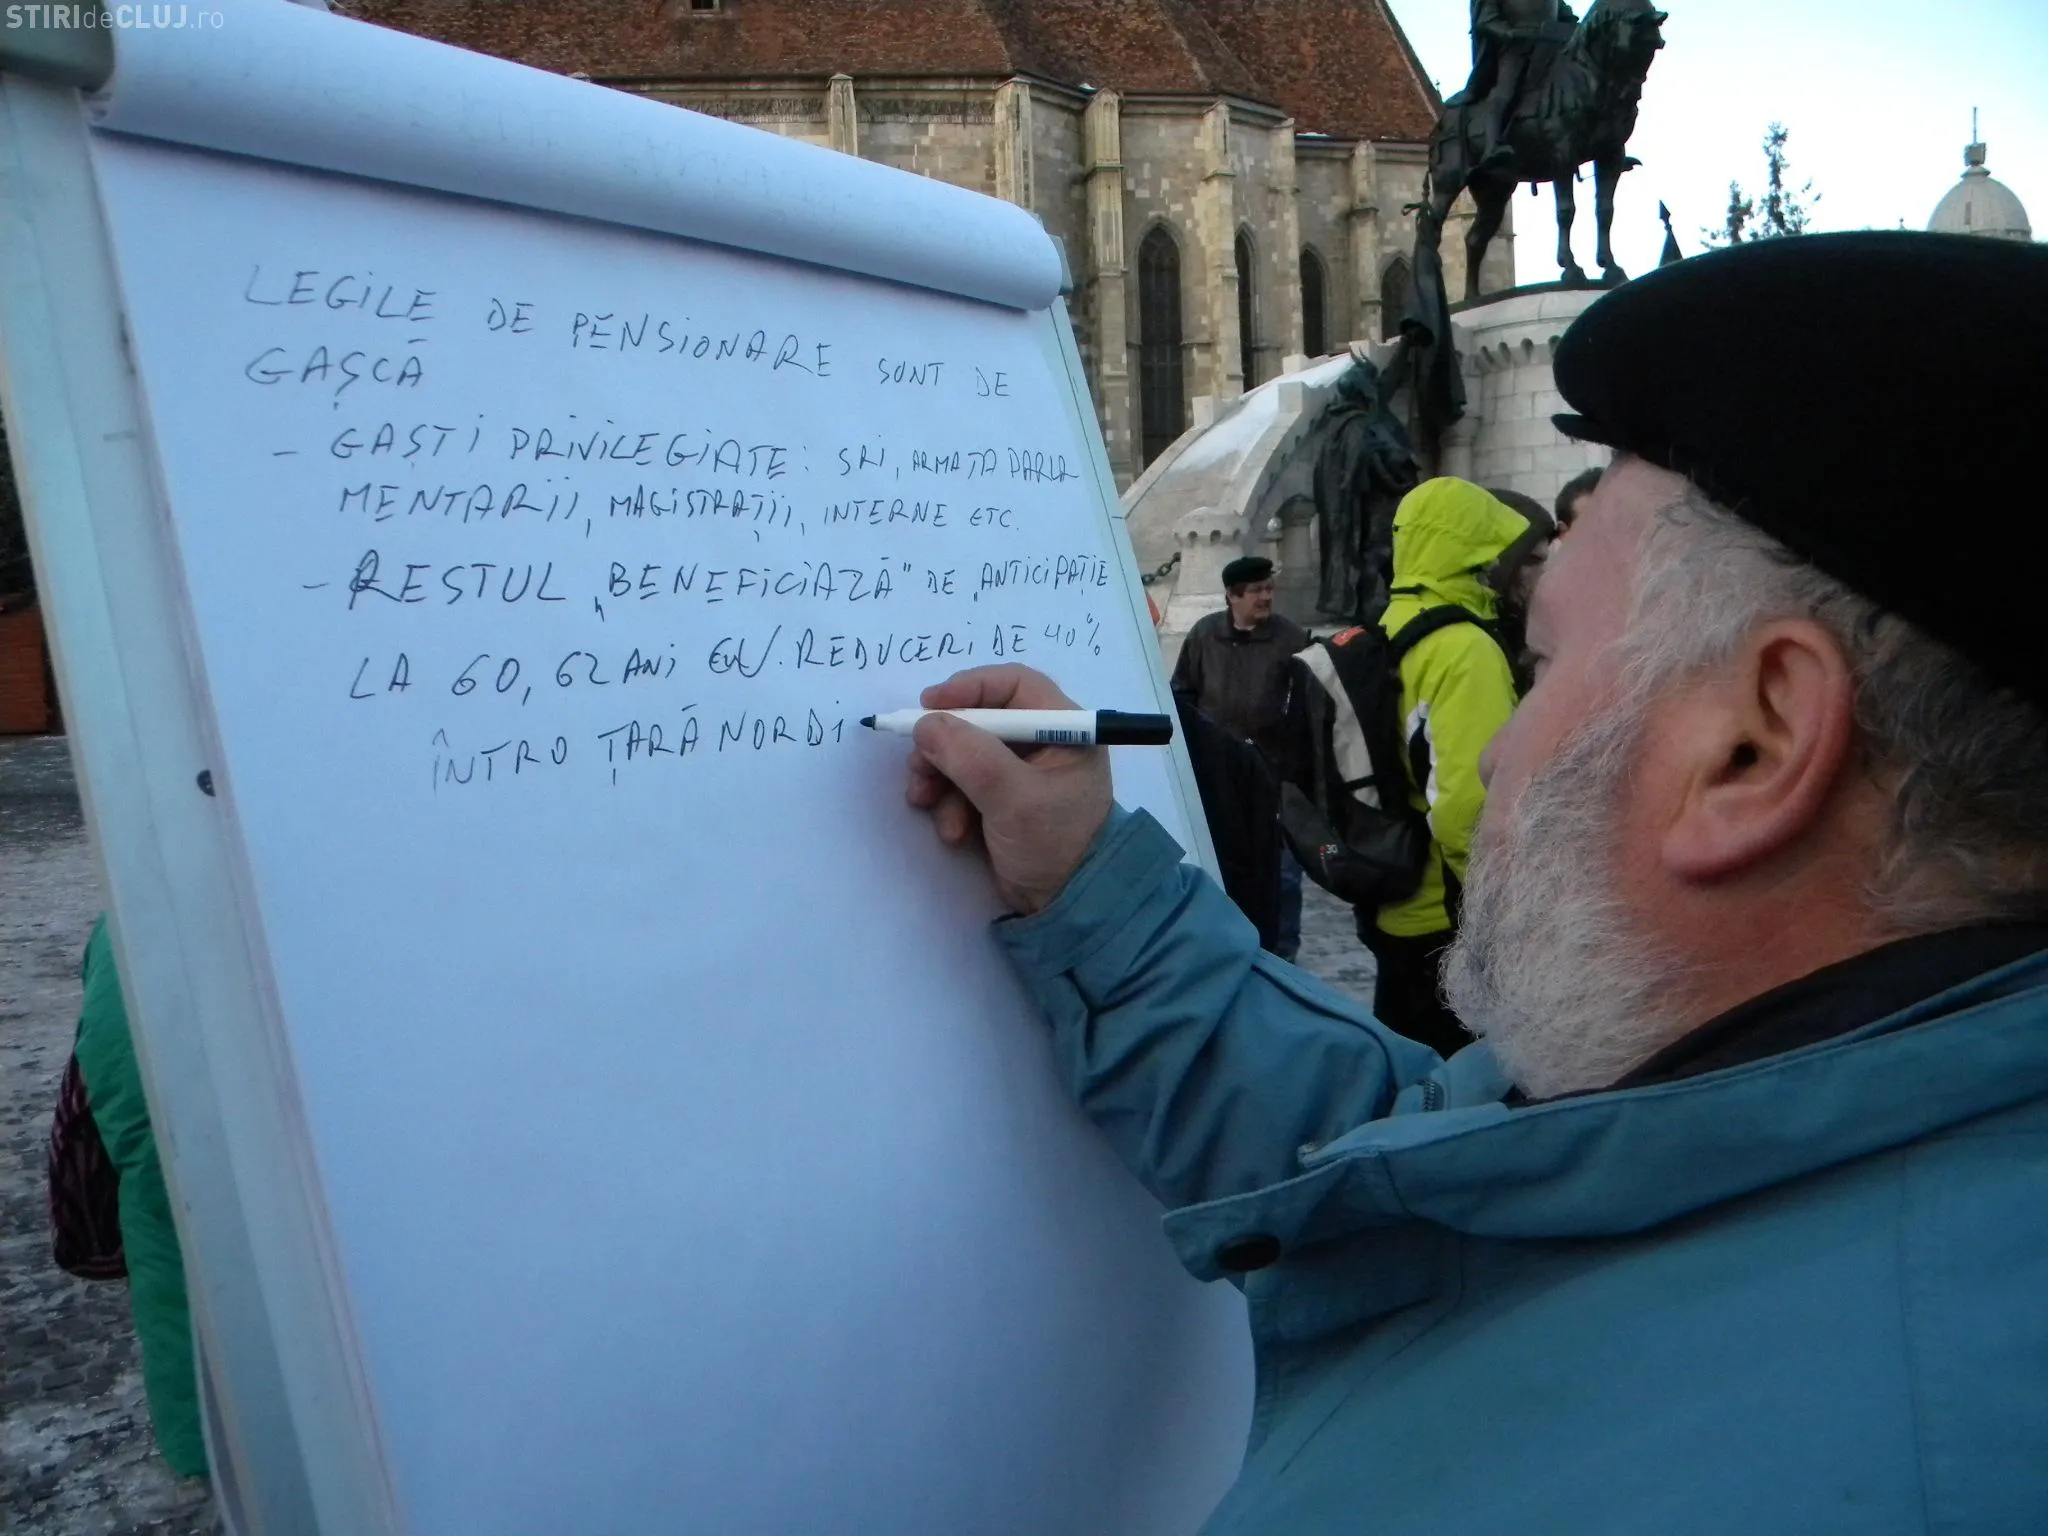 STIRIdeCLUJ.ro
LEGILE DE PENSIONARE SUNT DE
GAȘCĂ
- GAȘTI PRIVILEGIATE: SRI, ARMATA PARLA
MENTARII, MAGISTRAȚII, INTERNE ETC.
- RESTUL „BENEFICIAZĂ" DE „ANTICIPAȚIE
LA 60, 62 ANI CU REDUCERI DE 40%
ÎNTRO ȚARĂ NORDI
30